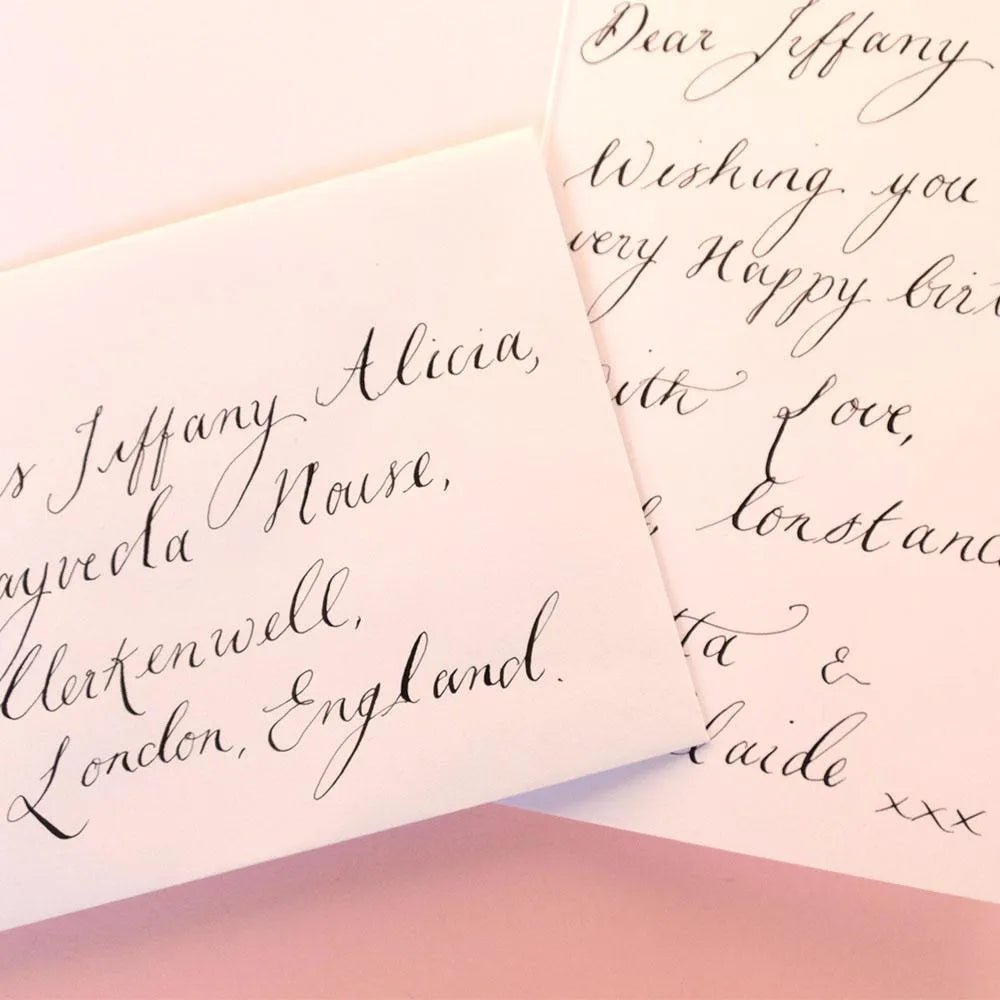 s Tiffany Alicia,
ayveda House,
Clerkenwell,
London, England.
Dear Tiffany
Wishing you
very Happy birt
with Love,
Constanc
tta &
laide
xxx